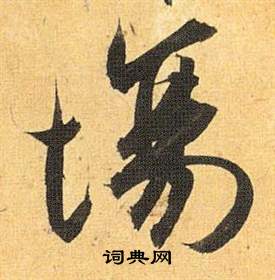 場
词典网